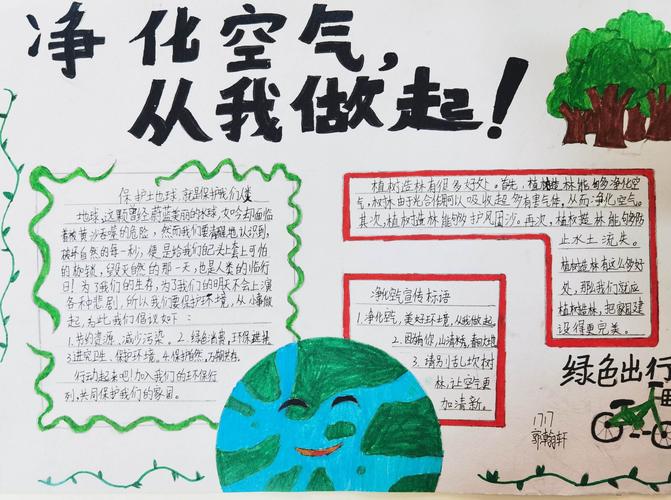 净化空气，
从我做起！
保护地球，就是保护我们
地球，这颗曾经蔚蓝美丽的水球，如今却面临
着被黄沙吞噬的危险，然而我们要清醒地认识到，
破坏自然的每一秒，便是给我们自己头上套上可怕
的枷锁，毁灭自然的那一天，也是人类的临行
日！为了我们的生存，为了我们的明天不会上演
各种悲剧，所以我们要保护环境，从小事做
起，为此我们倡议如下：
1.节约资源，减少污染。2.绿色消费，环保选购
3.讲究卫生，保护环境。4.保护自然，万物共存。
行动起来吧！加入我们的环保行
列，共同保护我们的家园。
植树造林有很多好处。首先，植树造林能够净化空
气，树林由于光合作用可以吸收起多有害气体，从而净化空气。
其次，植树造林能够护风固沙。再次，植树造林能够防
止水土流失。
植树造林有这么多好
处，那么我们就应
植树造林，把家园建
设得更完美。
净化空气宣传标语
1.净化空气，美好环境，从我做起。
2.因为有你，山清水秀，春回大地
3.请别乱坎树
林，让空气更
加清新。
绿色出行
1717
郭翰轩